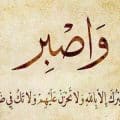 وَاصْبِر
إِلَّا بِاللَّهِ وَلَا تَحْزَنْ عَلَيْهِمْ وَلَا تَكُ فِي